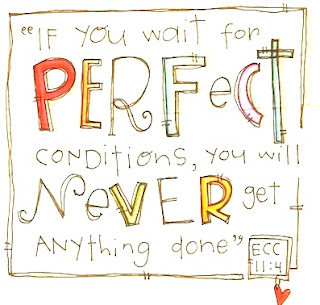 "IF YOU wait for
PERFECT
CONDITIONS, YOU will
NEVER get
ANYthing done"
ECC
11:4